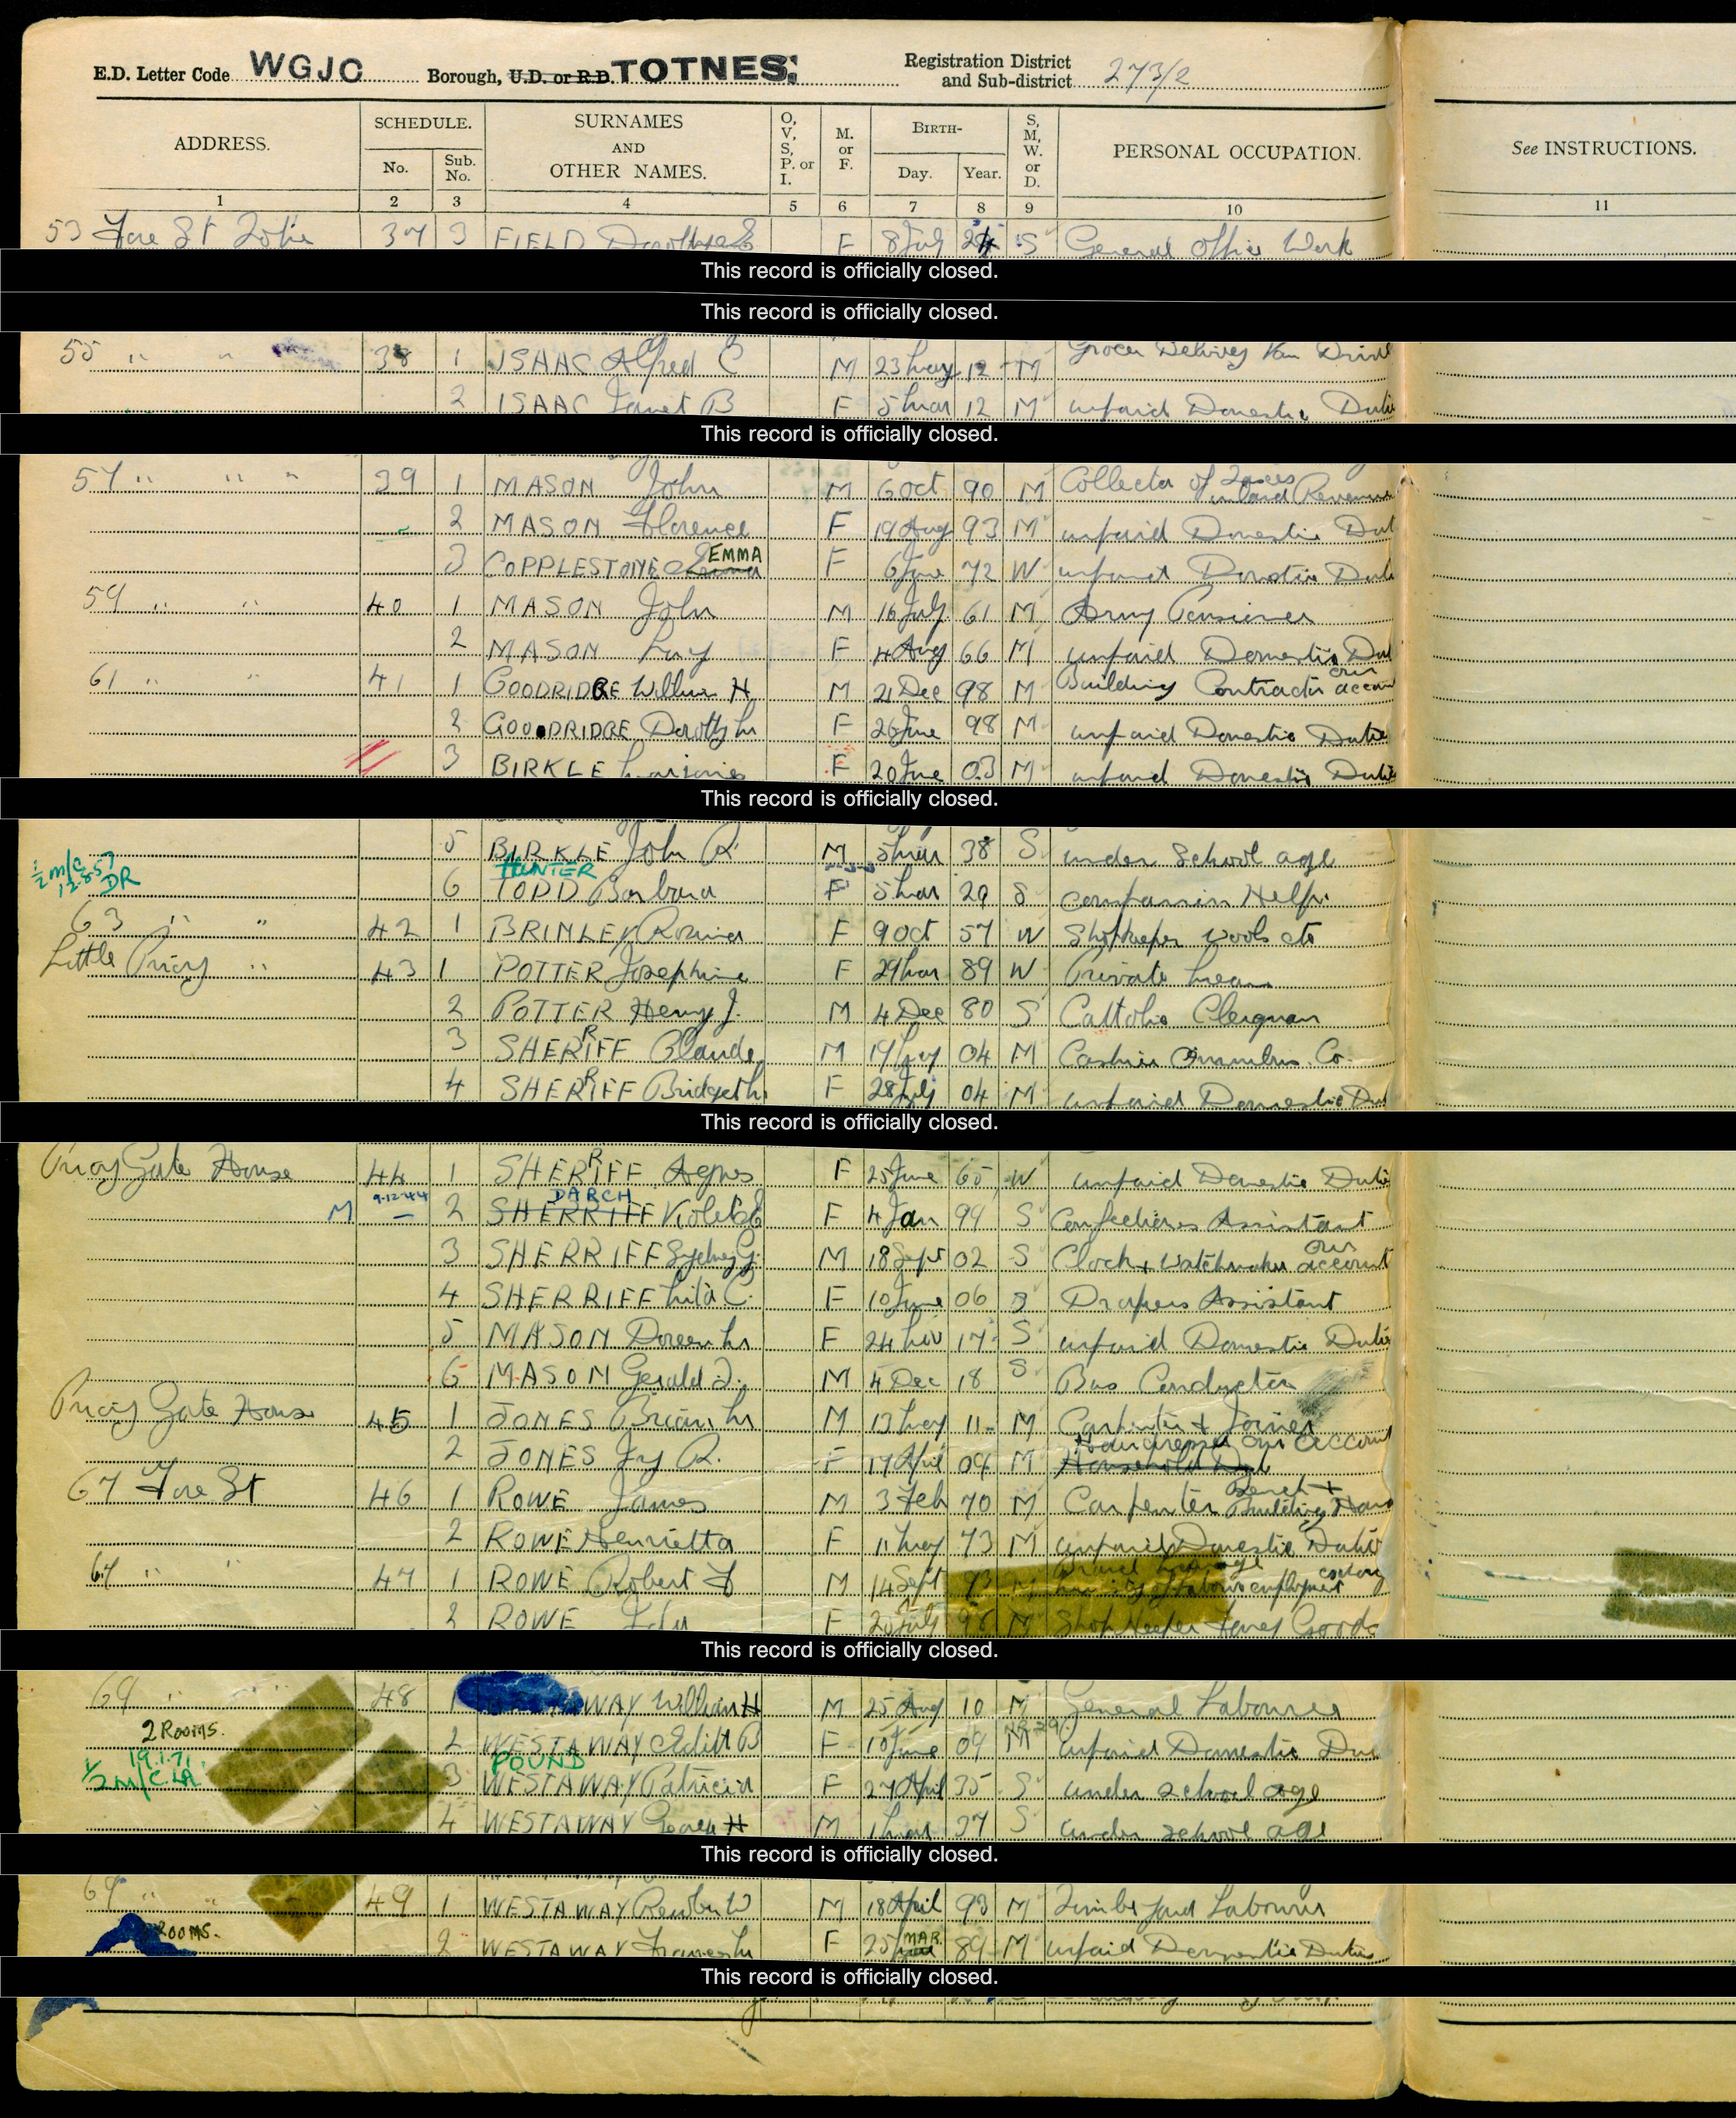 E.D. Letter Code WGJC Borough, U.D. or R.D. TOTNES: Registration District and Sub-district 273/2
ADDRESS. SCHEDULE. No. Sub. No. SURNAMES AND OTHER NAMES. O, V, S, P. or I. M. or F. BIRTH- Day. Year. S, M, W. or D. PERSONAL OCCUPATION. See INSTRUCTIONS.
1 2 3 4 5 6 7 8 9 10 11
53 Fore St 37 3 FIELD F 8 July 24 S General Office Work
This record is officially closed.
This record is officially closed.
55 " " 38 1 ISAAC Alfred C M 23 May 12 M Grocer Delivery Van
2 ISAAC Janet B F 5 Mar 12 M unpaid Domestic
This record is officially closed.
57 " " " 39 1 MASON John M 6 Oct 90 M Collector of Taxes Inland Revenue
2 MASON Florence F 19 Aug 93 M unpaid Domestic Dut
3 COPPLESTONE EMMA F 6 June 72 W unpaid Domestic
59 " " 40 1 MASON John M 16 July 61 M Army Pensioner
2 MASON F 4 Aug 66 M unpaid Domestic Dut
61 " " 41 1 GOODRIDGE William H M 21 Dec 98 M Building Contractor own account
2 GOODRIDGE Dorothy M F 26 June 98 M unpaid Domestic Duties
3 BIRKLE Marjorie F 20 June 03 M unpaid Domestic Duties
This record is officially closed.
5 BIRKLE John R M 5 Mar 38 S under School age
½ m/c 12.8.57 DR HUNTER
6 TODD Barbara F 5 Mar 20 S companion Help.
63 " " 42 1 BRIMLEY F 9 Oct 57 W Shopkeeper wools etc
Little Priory " 43 1 POTTER Josephine F 29 Mar 89 W Private Means
2 POTTER Henry J. M 4 Dec 80 S Catholic Clergyman
3 SHERRIFF Claude M 19 May 04 M Cashier Omnibus Co.
4 SHERRIFF Bridget M F 28 July 04 M unpaid Domestic Dut
This record is officially closed.
Priory Gate House 44 1 SHERRIFF Agnes F 25 June 65 W unpaid Domestic Dutie
M 9.12.44 DARCH
2 SHERRIFF Violet F 4 Jan 99 S Confectioners Assistant
3 SHERRIFF Sydney G. M 18 Sept 02 S Clock & Watchmaker own account
4 SHERRIFF Lila C. F 10 June 06 S Drapers Assistant
5 MASON Doreen M F 24 Nov 17 S unpaid Domestic Dutie
6 MASON Gerald J. M 4 Dec 18 S Bus Conductor
Priory Gate House 45 1 JONES Brian M M 13 May 11 M Carpenter & Joiner
2 JONES Joy R. F 17 April 09 M Hairdresser own account
67 Fore St 46 1 ROWE James M 3 Feb 70 M Carpenter Bench &
2 ROWE Henrietta F 11 May 73 M unpaid Domestic Duties
67 " " 47 1 ROWE Robert M 14 Sept 93 M
2 ROWE F 20 July 98 M Shop Keeper Fancy Goods
This record is officially closed.
69 " " 48 1 WESTAWAY William H M 25 Aug 10 M General Labourer
2 Rooms.
2 WESTAWAY Edith B F 10 June 09 M unpaid Domestic Dut
½ m/c 19.1.71. LA POUND
3 WESTAWAY Patricia F 27 April 35 S under school age
4 WESTAWAY H M 1 Mar 37 S under school age
This record is officially closed.
69 " " 49 1 WESTAWAY Reuben W M 18 April 93 M Timber Yard Labourer
ROOMS.
2 WESTAWAY Frances M F 25 MAR. 89 M unpaid Domestic Duties
This record is officially closed.